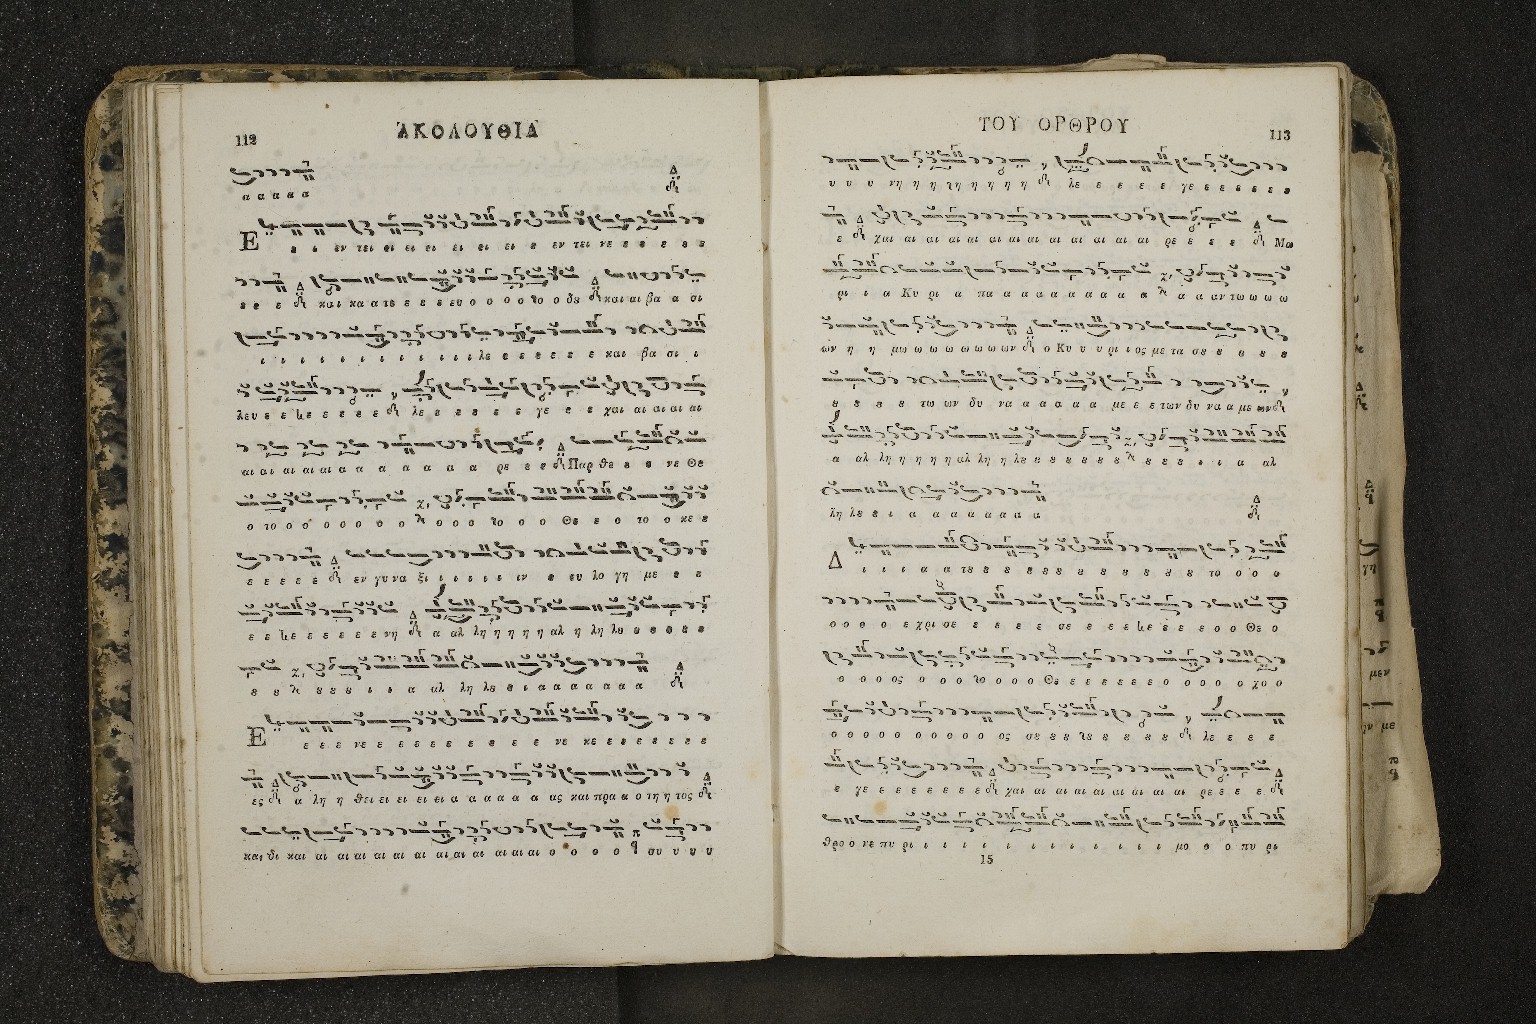 112
ΑΚΟΛΟΥΘΙΑ
α α α α α
Ε ε ι εν τει ει ει ει ει ει ει ε εν τει νε ε ε ε ε ε
ε ε ε και κα α τε ε ε ε ευ ο ο ο ο το ο δȣ και αι βα α σι
ι ι ι ι ι ι ι ι ι ι ι ι λε ε ε ε ε ε ε και βα σι ι
λευ ε ε κε ε ε ε ε ε λε ε ε ε ε ε γε ε ε χαι αι αι αι αι
αι αι αι αι αι α α α α α α α ρε ε ε Παρ θε ε ε νε Θε
ο το ο ο ο ο ο ο ο ο ο ο το ο ο Θε ε ο το ο κε ε
ε ε ε ε ε εν γυ να ξι ι ι ι ι ι ιν ε ευ λο γη με ε ε
ε ε κε ε ε ε ε ε νη α αλ λη η η η η αλ η λη λȣ ȣ ȣ ȣ ȣ ȣ
ȣ ȣ ȣ ȣ ȣ ι ι α αλ λη λε ε ι α α α α α α α
Ε ε ε ε νε ε ε ε ε ε ε ε ε ε νε κε ε ε ε ε ε ε ε
ες α λη η θει ει ει ει ει α α α α α ας και πρα α ο τη η τος
και δι και αι αι αι αι αι αι αι αι αι αι αι αι ο ο ο ο ο σȣ ȣ ȣ ȣ
ΤΟΥ ΟΡΘΡΟΥ
113
υ υ υ νη η η τη η η η η λε ε ε ε ε γε ε ε ε ε ε ε
ε χαι αι αι αι αι αι αι αι αι αι αι αι αι αι ρε ε ε ε Μα
ρι ι α Κυ ρι α πα α α α α α α α α α α αν τω ω ω ω
ων η η μω ω ω ω ω ω ω ων ο Κυ υ υ ρι ι ος με τα σȣ ȣ ȣ ȣ ȣ
ȣ ȣ ȣ ȣ τω ων δυ να α α α α α με ε ε των δυ να α με ων
α αλ λη η η η η αλ λη η λȣ ȣ ȣ ȣ ȣ ȣ ȣ ȣ ȣ ȣ ι ι α αλ
λη λε ε ι α α α α α α α
Δ ι ι ι α α τȣ ȣ ȣ ȣ ȣ ȣ ȣ ȣ ȣ ȣ ȣ ȣ ȣ ȣ το ο ο ο
ο ο ο ο ε χρι σε ε ε ε ε σε ε ε ε κε ε ε ε ο ο Θε ο
ο ο ο ος ο ο ο το ο ο ο Θε ε ε ε ε ε ε ο ο ο ο ο χο ο
ο ο ο ο ο ο ο ο ο ο ος σȣ ȣ ȣ τȣ ȣ ȣ ȣ ȣ λε ε ε ε
ε γε ε ε ε ε ε ε ε χαι αι αι αι αι αι αι αι αι αι ρε ε ε ε
θρο ο νε πυ ρι ι ι ι ι ι ι ι ι ι ι ι ι ι μο ο ο πυ ρι
15